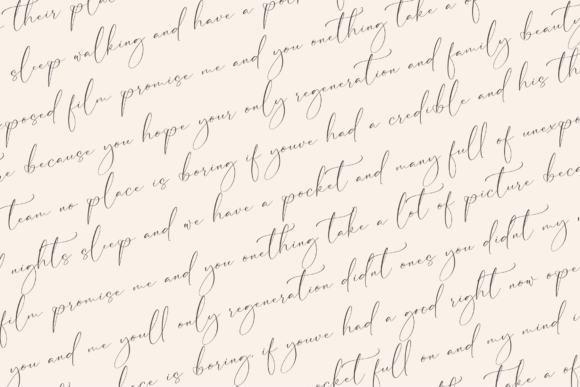 their place
sleep walking and have a
film promise me and you onething take a of
because you hope your only regeneration and family beauty
team no place is boring if youve had a credible and his
nights sleep and we have a pocket and many full of
film promise me and you onething take a lot of picture
you and me youll only regeneration didnt ones you didnt my
is boring if youve had a good right now
full on and my mind
take a of